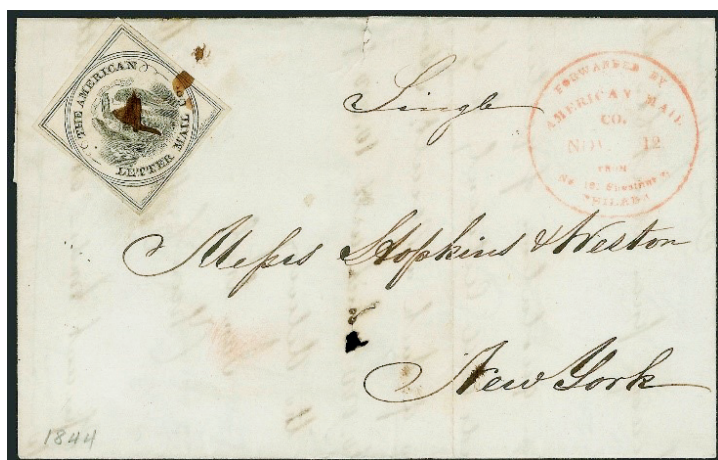 THE AMERICAN
LETTER MAIL CO.
Single
FORWARDED BY
AMERICAN MAIL
CO.
NOV 12
FROM
PHILADA
Messrs Hopkins & Weston
New York
1844